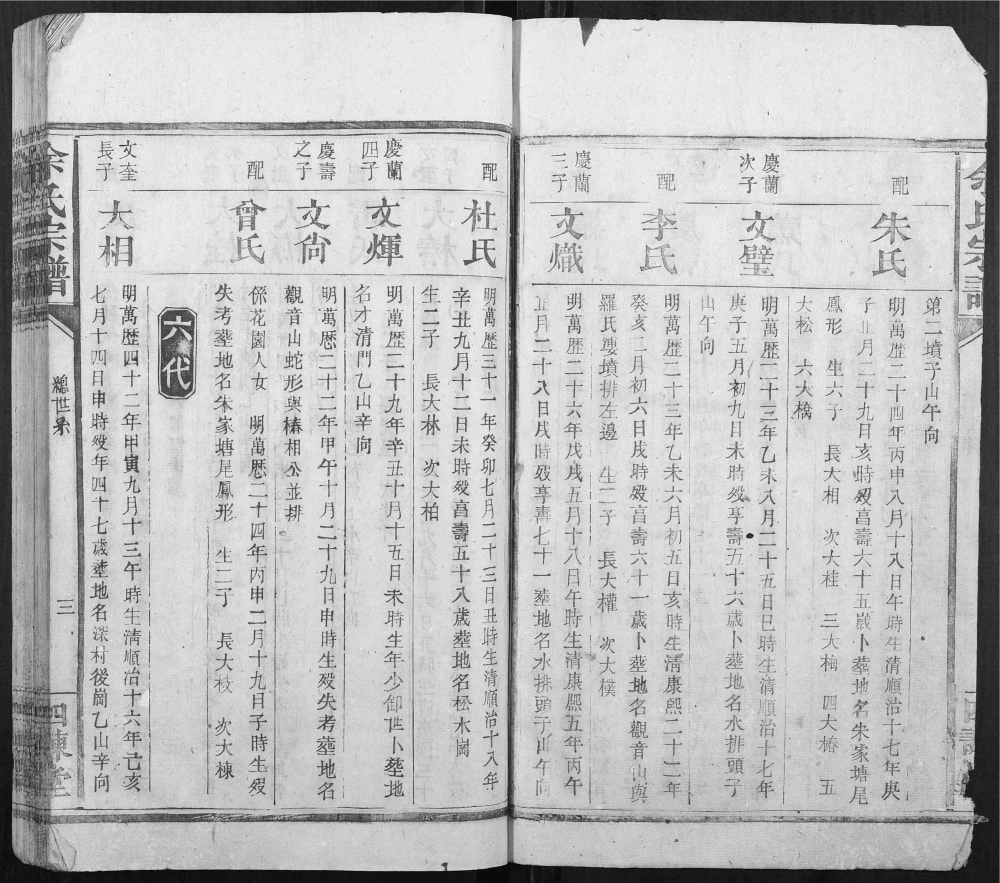 余氏宗譜
第二墳子山午向
配
朱氏
明萬歷二十四年丙申八月十八日午時生清順治十七年庚
子正月二十九日亥時殁享壽六十五歲卜塟地名朱家塘尾
鳳形　生六子　長大相　次大桂　三大楠　四大椿　五
大松　六大檎
慶蘭
次子
文璧
明萬歷二十三年乙未八月二十五日巳時生清順治十七年
庚子五月初九日未時殁享壽五十六歲卜塟地名水排頭子
山午向
配
李氏
明萬歷二十三年乙未六月初五日亥時生清康熙二十二年
癸亥二月初六日戌時殁享壽六十一歲卜塟地名觀音山與
羅氏墳排左邊　生二子　長大權　次大樸
慶蘭
三子
文熾
明萬歷二十六年戊戌五月十八日午時生清康熙五年丙午
正月二十八日戌時殁享壽七十一塟地名水排頭子山午向
配
杜氏
明萬歷三十一年癸卯七月二十三日丑時生清順治十八年
辛丑九月十二日未時殁享壽五十八歲塟地名松木崗
生二子　長大林　次大柏
慶蘭
四子
文煇
明萬歷二十九年辛丑十月十五日未時生年少御世卜塟地
名才清門乙山辛向
慶壽
之子
文尙
明萬歷二十二年甲午十月二十九日申時生殁失考塟地名
觀音山蛇形與椿相公並排
配
曾氏
係花園人女　明萬歷二十四年丙申二月十九日子時生殁
失考塟地名朱家塘尾鳳形　生二子　長大枝　次大棟
六代
文奎
長子
大相
明萬歷四十二年甲寅九月十三午時生淸順治十六年己亥
七月十四日申時殁年四十七歲塟地名深村後崗乙山辛向
余氏宗譜
總世系
三